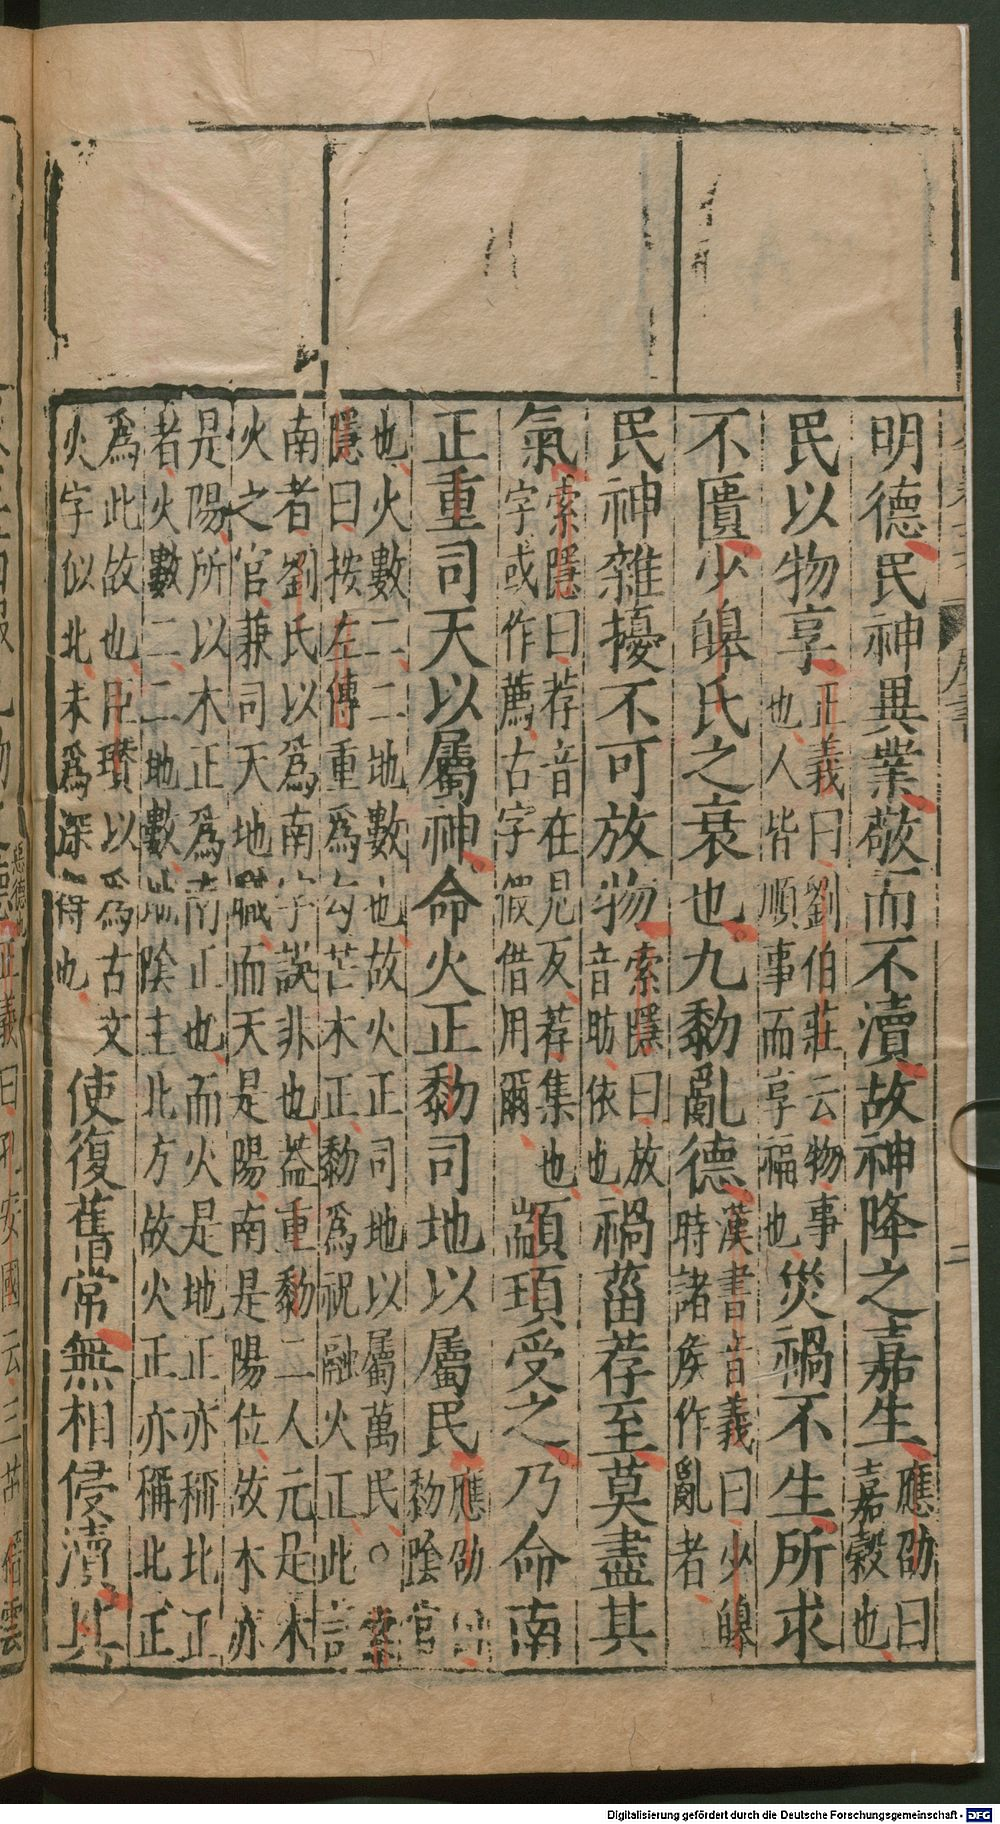 明德民神異業敬而不瀆故神降之嘉生應劭曰嘉穀也
民以物享正義曰劉伯莊云物事也人皆順事而享福也災禍不生所求
不匱少皥氏之衰也九黎亂德漢書音義曰少皥時諸侯作亂者
民神雜擾不可放物索隱曰放音昉依也禍菑荐至莫盡其
氣索隱曰荐音在見反荐集也字或作薦古字假借用爾顓頊受之乃命南
正重司天以屬神命火正黎司地以屬民應劭曰黎陰官
也火數二二地數也故火正司地以屬萬民○索
隱曰按左傳重爲勾芒木正黎爲祝融火正此言
南者劉氏以爲南字誤非也葢重黎二人元是木
火之官兼司天地職而天是陽南是陽位故木亦
是陽所以木正爲南正也而火是地正亦稱北正
者火數二二地數地陰主北方故火正亦稱北正
爲此故也臣瓚以爲古文
火字似北未爲深得也
使復舊常無相侵瀆其
二
正義曰孔安國云三苗
Digitalisierung gefördert durch die Deutsche Forschungsgemeinschaft - DFG